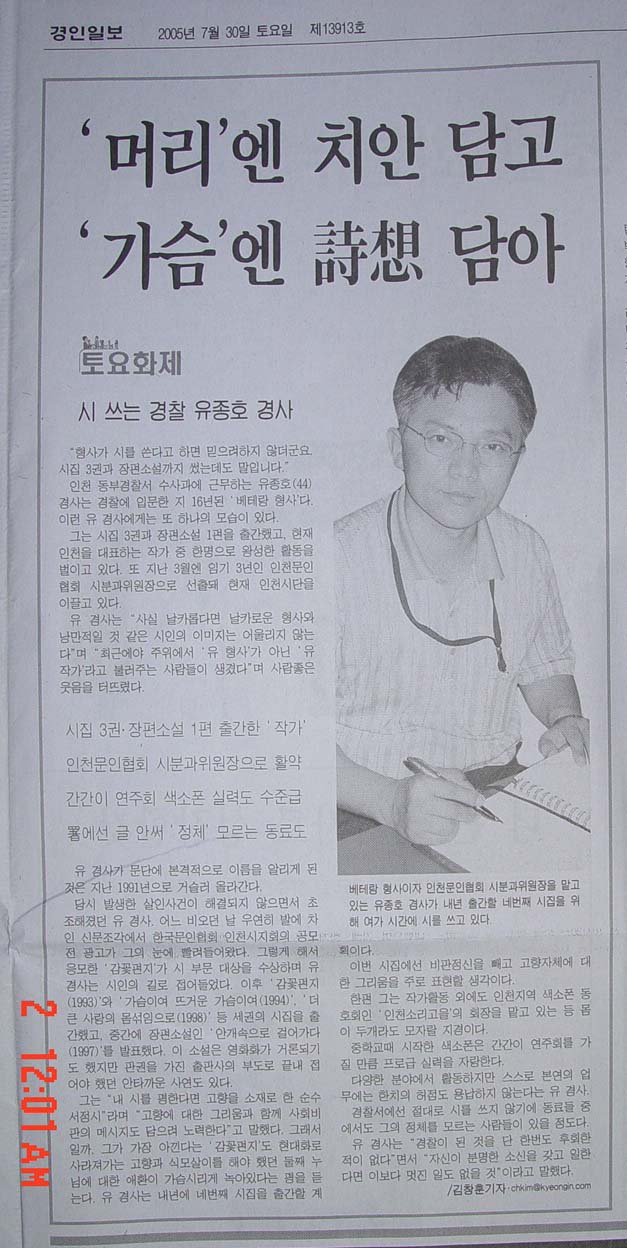 경인일보 2005년 7월 30일 토요일 제13913호
‘머리’엔 치안 담고
‘가슴’엔 詩想 담아
토요화제
시 쓰는 경찰 유종호 경사
“형사가 시를 쓴다고 하면 믿으려하지 않더군요.
시집 3권과 장편소설까지 썼는데도 말입니다.”
인천 동부경찰서 수사과에 근무하는 유종호(44)
경사는 경찰에 입문한 지 16년된 ‘베테랑 형사’다.
이런 유 경사에게는 또 하나의 모습이 있다.
그는 시집 3권과 장편소설 1편을 출간했고, 현재
인천을 대표하는 작가 중 한명으로 왕성한 활동을
벌이고 있다. 또 지난 3월엔 임기 3년인 인천문인
협회 시분과위원장으로 선출돼 현재 인천시단을
이끌고 있다.
유 경사는 “사실 날카롭다면 날카로운 형사와
낭만적일 것 같은 시인의 이미지는 어울리지 않는
다”며 “최근에야 주위에서 ‘유 형사’가 아닌 ‘유
작가’라고 불러주는 사람들이 생겼다”며 사람좋은
웃음을 터뜨렸다.
시집 3권·장편소설 1편 출간한 ‘작가’
인천문인협회 시분과위원장으로 활약
간간이 연주회 색소폰 실력도 수준급
署에선 글 안써 ‘정체’ 모르는 동료도
유 경사가 문단에 본격적으로 이름을 알리게 된
것은 지난 1991년으로 거슬러 올라간다.
당시 발생한 살인사건이 해결되지 않으면서 초
조해졌던 유 경사. 어느 비오던 날 우연히 발에 차
인 신문조각에서 한국문인협회 인천시지회의 공모
전 광고가 그의 눈에 빨려들어왔다. 그렇게 해서
응모한 ‘감꽃편지’가 시 부문 대상을 수상하며 유
경사는 시인의 길로 접어들었다. 이후 ‘감꽃편지
(1993)’와 ‘가슴이여 뜨거운 가슴이여(1994)’, ‘더
큰 사랑의 몸섞임으로(1998)’ 등 세권의 시집을 출
간했고, 중간에 장편소설인 ‘안개속으로 걸어가다
(1997)’를 발표했다. 이 소설은 영화화가 거론되기
도 했지만 판권을 가진 출판사의 부도로 끝내 접
어야 했던 안타까운 사연도 있다.
그는 “내 시를 평한다면 고향을 소재로 한 순수
서정시”라며 “고향에 대한 그리움과 함께 사회비
판의 메시지도 담으려 노력한다”고 말했다. 그래서
일까. 그가 가장 아낀다는 ‘감꽃편지’도 현대화로
사라져가는 고향과 식모살이를 해야 했던 둘째 누
님에 대한 애환이 가슴시리게 녹아있다는 평을 듣
는다. 유 경사는 내년에 네번째 시집을 출간할 계
베테랑 형사이자 인천문인협회 시분과위원장을 맡고
있는 유종호 경사가 내년 출간할 네번째 시집을 위
해 여가 시간에 시를 쓰고 있다.
획이다.
이번 시집에선 비판정신을 빼고 고향자체에 대
한 그리움을 주로 표현할 생각이다.
한편 그는 작가활동 외에도 인천지역 색소폰 동
호회인 ‘인천소리고을’의 회장을 맡고 있는 등 몸
이 두개라도 모자랄 지경이다.
중학교때 시작한 색소폰은 간간이 연주회를 가
질 만큼 프로급 실력을 자랑한다.
다양한 분야에서 활동하지만 스스로 본연의 업
무에는 한치의 허점도 용납하지 않는다는 유 경사.
경찰서에선 절대로 시를 쓰지 않기에 동료들 중
에서도 그의 정체를 모르는 사람들이 있을 정도다.
유 경사는 “경찰이 된 것을 단 한번도 후회한
적이 없다”면서 “자신이 분명한 소신을 갖고 일한
다면 이보다 멋진 일도 없을 것”이라고 말했다.
/김창훈기자·chkim@kyeongin.com
2 12:01 AM